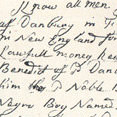 Know all men
of Danbury in
in New England for
Lawfull money
Benedict of Danb
him the Noble
Negro Boy Named